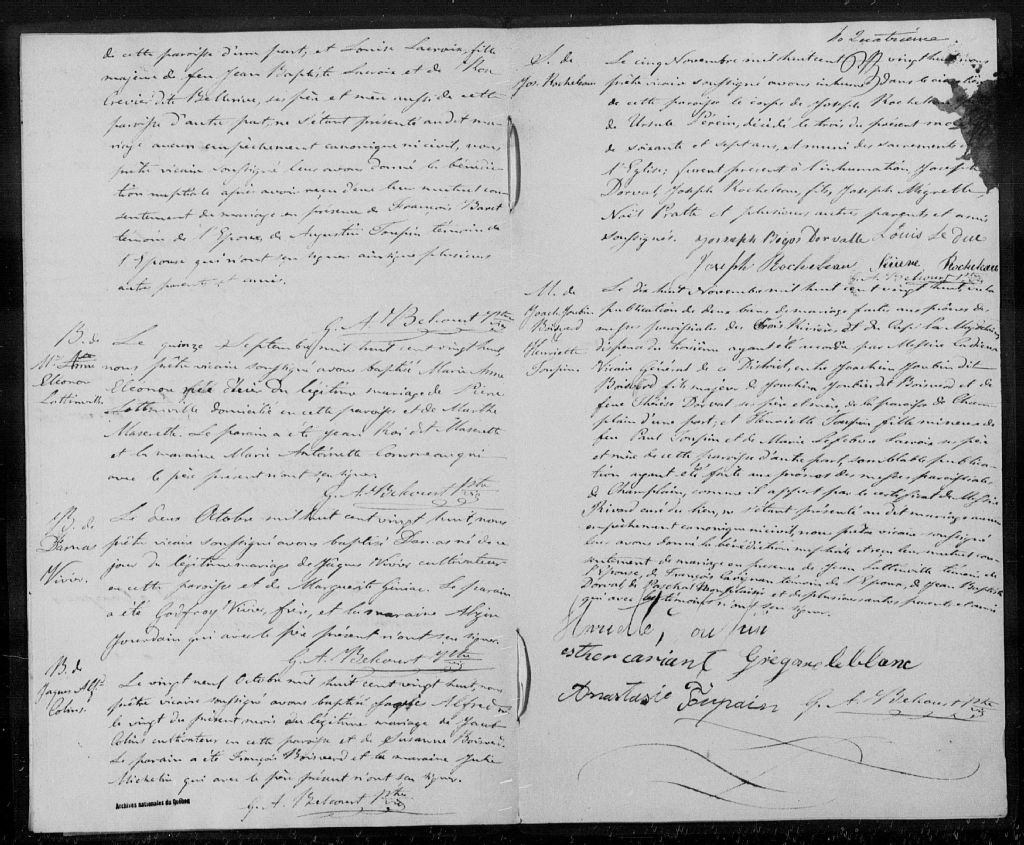 de cette paroisse d'une part; et Louise Lacroix, fille
majeure de feu Jean Baptiste Lacroix et de
dite Bellerive, ses père et mère aussi de cette
paroisse d'autre part; ne s'étant présenté audit ma-
riage aucun empêchement canonique ni civil, nous
prêtre vicaire soussigné leur avons donné la bénédic-
tion nuptiale après avoir reçu d'eux leur mutuel con-
sentement de mariage en présence de François Baret
témoin de l'Epoux, de Augustin Toupin témoin de
l'Epouse qui n'ont su signer ainsi que plusieurs
autre parents et amis.
G. A. Belcourt Ptre
B. de
Mie Anne
Eleonore
Lottinville
Le quinze Septembre mil huit cent vingt huit,
nous prêtre vicaire soussigné avons baptisé Marie Anne
Eleonore née du légitime mariage de Réné
Lottinville domicilié en cette paroisse et de Marthe
Masenette. Le parain a été Jean Roi dit Masenette
et la maraine Marie Antoinette qui
avec le père présent n'ont su signer.
G. A. Belcourt Ptre
B. de
Damas
Vivier.
Le deux Octobre mil huit cent vingt huit, nous
prêtre vicaire soussigné avons baptisé Damas né de ce
jour du légitime mariage de Jâques Vivier cultivateur
en cette paroisse et de Marguerite Giniac. Le parain
a été Godfroy Vivier, frère, et la maraine
Jourdain qui avec le père présent n'ont su signer.
G. A. Belcourt Ptre
B. de
Jaques Alf.
Colins.
Le vingt neuf Octobre mil huit cent vingt huit, nous
prêtre vicaire soussigné avons baptisé Jaques Alfred né
le vingt du présent mois du légitime mariage de
Colins cultivateur en cette paroisse et de Susanne Boisverd.
Le parain a été François Boisverd et la maraine Julie
Michelin qui avec le père présent n'ont su signer.
G. A. Belcourt Ptre
Archives nationales du Québec
Quatrième.
S. de
Jos. Rocheleau
Le cinq Novembre mil huit cent vingt huit, nous
prêtre vicaire soussigné avons inhumé dans le
de cette paroisse le corps de Joseph Rocheleau
de Ursule décédé le trois du présent mois
de soixante et sept ans, et muni des sacrements de
l'Eglise; furent présent à l'inhumation, Joseph
Dorval, Joseph Rocheleau, fils, Joseph
Noël Pratte et plusieurs autres parents et amis
soussignés. Josseph Bigos Dorvalle Louis Le Duc
Joseph Rocheleau Rocheleau
G. A. Belcourt Ptre
M. de
Joach. Joubin
Boisverd
Henriette
Toupin.
Le dix huit Novembre mil huit cent vingt huit, vu la
publication de deux bans de mariage faite aux prônes des
messes paroissiales des Trois Rivières et du Cap la Magdeleine
dispense du troisième ayant été accordée par Messire Cadieux
Vicaire Général de ce District, entre Joachim Joubin dit
Boisverd fils majeur de Joachim Joubin dit Boisverd et de
feue Thérèse Dorval ses père et mère, de la paroisse de Cham-
plain d'une part; et Henriette Toupin fille mineure de
feu Paul Toupin et de Marie Lefebvre ses père
et mère de cette paroisse d'autre part, semblable publica-
tion ayant été faite aux prônes des messes paroissiales
de Champlain, comme il appert par le certificat de Messire
Rivard curé du lieu, ne s'étant présenté audit mariage aucun
empêchement canonique ni civil, nous prêtre vicaire soussigné
leur avons donné la bénédiction nuptiale et reçu leur mutuel con-
sentement de mariage en présence de Jean Lottinville témoin de
l'Epouse, de François témoin de l'Epoux, de Jean Baptiste
Dorval, de Paschal et de plusieurs autres parents et amis
qui avec les témoins n'ont su signer.
ester cariant Grégoire leblanc
Anastasie Toupain G. A. Belcourt Ptre